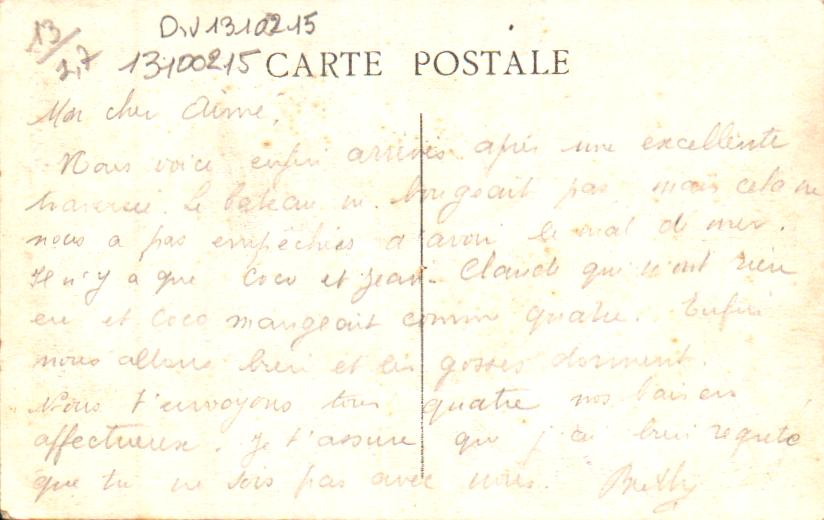 13/2,7
D,V 1310215
13100215 CARTE POSTALE
Mon cher Aimé,
Nous voici enfin arrivés après une excellente
traversée. Le bateau ne bougeait pas mais cela ne
nous a pas empêchées d'avoir le mal de mer.
Il n'y a que Coco et Jean-Claude qui n'ont rien
eu et Coco mangeait comme quatre. Enfin
nous allons bien et les gosses dorment.
Nous t'envoyons tous quatre nos baisers
affectueux. Je t'assure que j'ai bien regretté
que tu ne sois pas avec nous. Betty